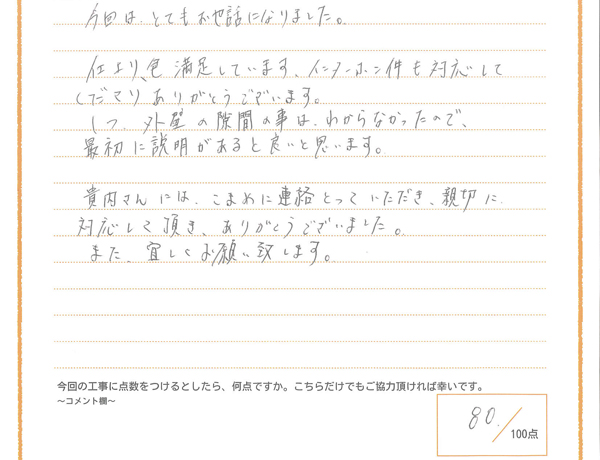 今回は、とてもお世話になりました。
仕上り、色 満足しています、インターホン件も対応して
くださり ありがとうございます。
1つ、外壁の隙間の事は、わからなかったので、
最初に説明があると良いと思います。
貴内さんには、こまめに連絡とっていただき、親切に
対応して頂き、ありがとうございました。
また、宜しくお願い致します。
今回の工事に点数をつけるとしたら、何点ですか。こちらだけでもご協力頂ければ幸いです。
〜コメント欄〜
80.／100点